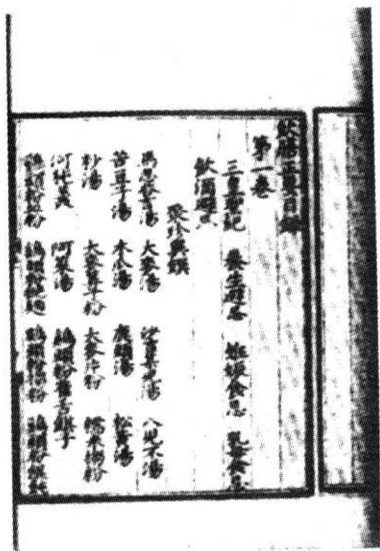 飲膳正要目錄
第一卷
三皇聖紀 養生避忌 妊娠食忌 乳母食忌
飲酒避忌
聚珍異饌
馬思荅吉湯 大麥湯 八兒不湯
苦豆湯 木瓜湯 鹿頭湯 松黃湯
大麥筭子粉 大麥片粉 糯米粉搊粉
阿菜湯 鷄頭粉雀舌
鷄頭粉 鷄頭粉 鷄頭粉搊粉 鷄頭粉餛飩